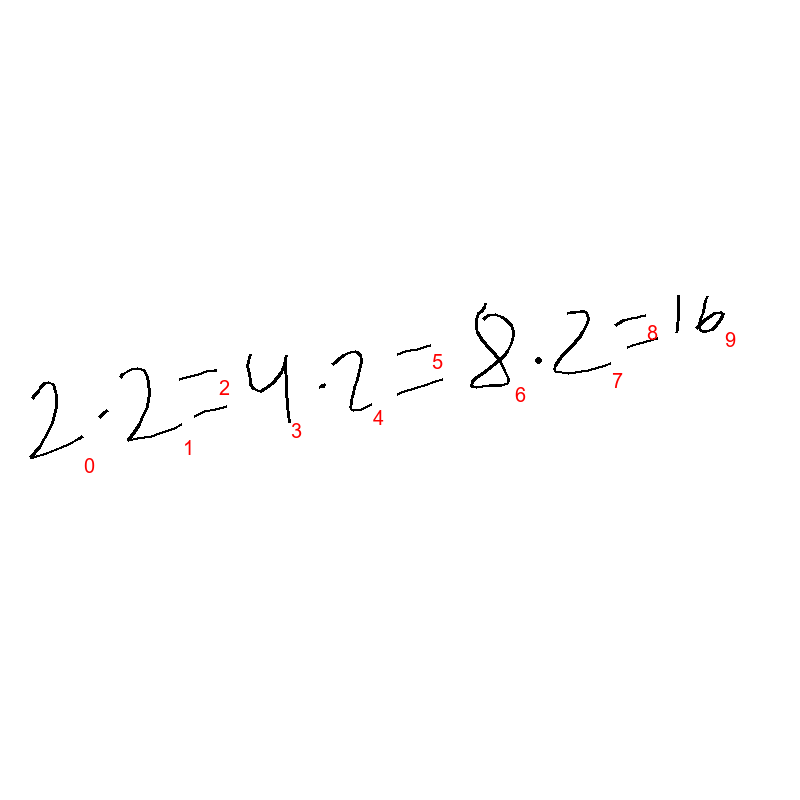 2 · 2 = 4 · 2 = 8 · 2 = 16
0 1 2 3 4 5 6 7 8 9